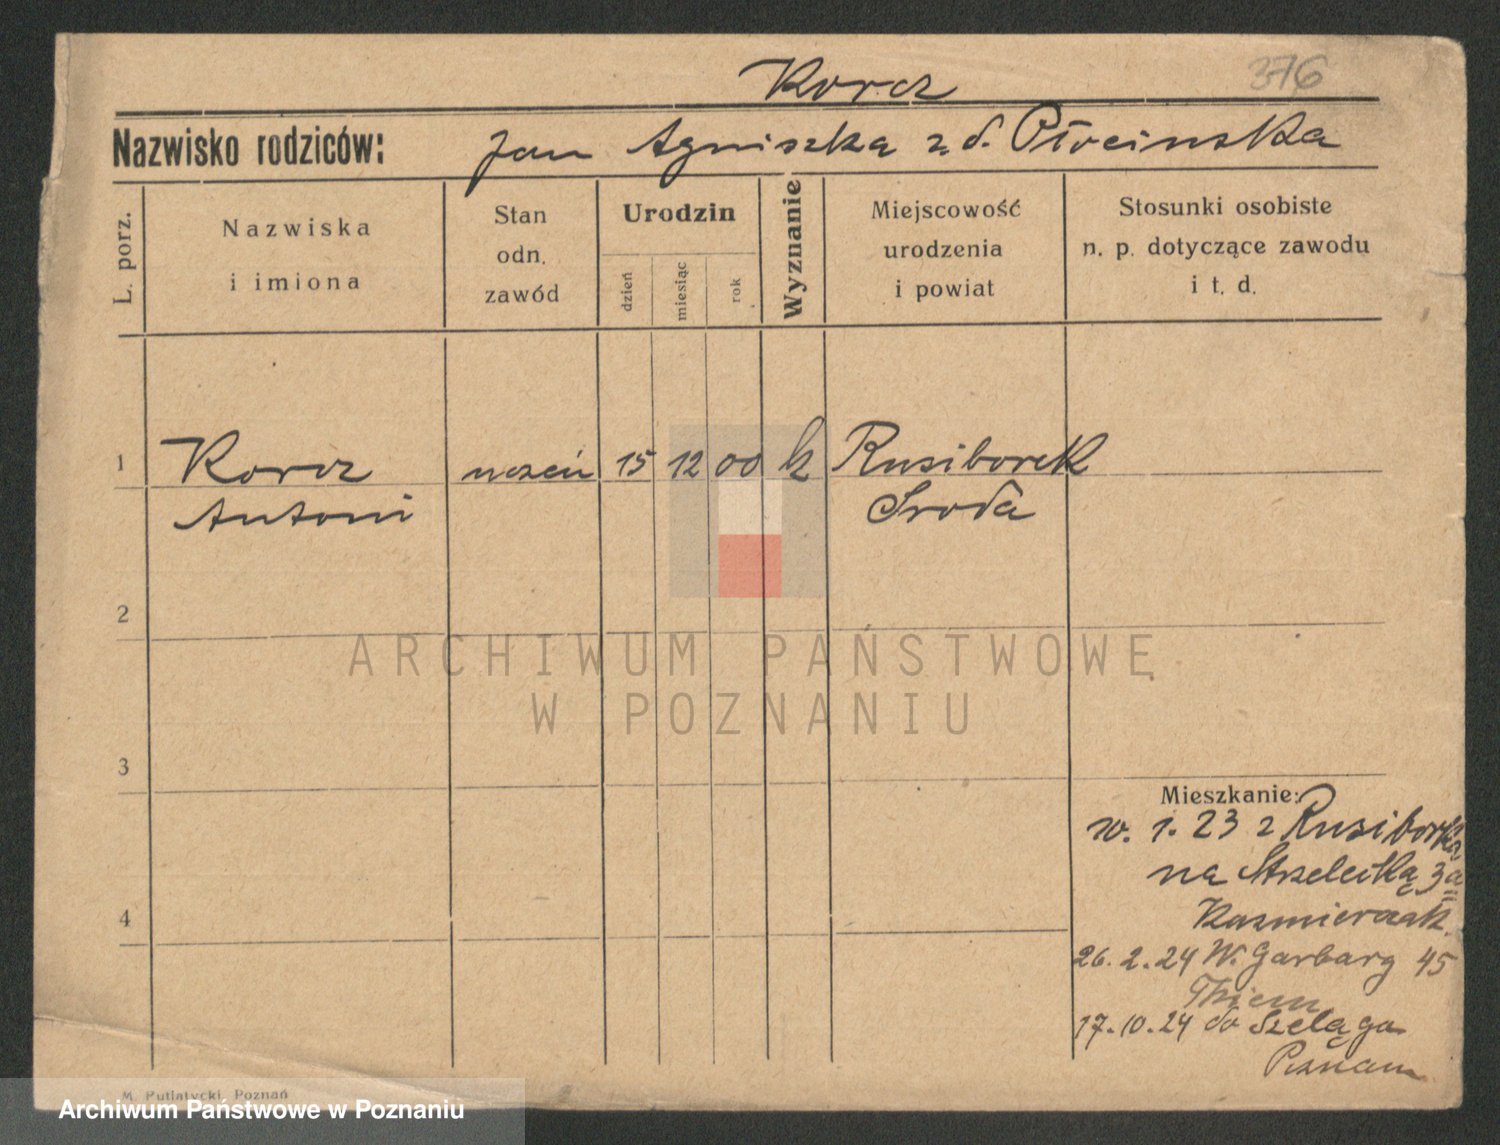 Korcz 376
Nazwisko rodziców: Jan Agniszka z d. Płocinska
L. porz.
Nazwiska
i imiona
Stan
odn.
zawód
Urodzin
dzień
miesiąc
rok
Wyznanie
Miejscowość
urodzenia
i powiat
Stosunki osobiste
n. p. dotyczące zawodu
i t. d.
1 Korcz uczeń 15 12 00 k Rusiborek
Antoni Sroda
2
ARCHIWUM PAŃSTWOWE
W POZNANIU
3
Mieszkanie:
w. 1. 23 z Rusiborka
na Strzelecką 3a
Kazmierczak.
4
26. 2. 24 W. Garbary 45
Thiem
17. 10. 24 do Szeląga
Poznań
M. Putiatycki, Poznań
Archiwum Państwowe w Poznaniu